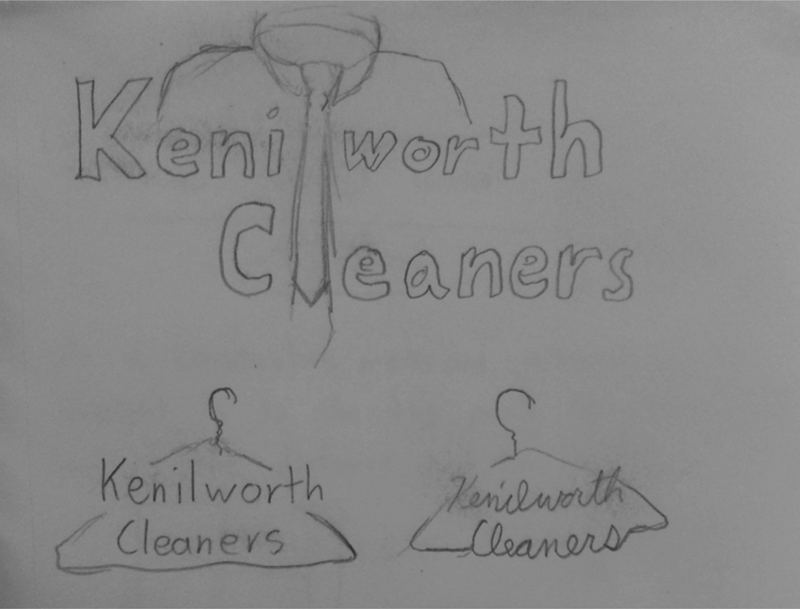 Kenilworth
Cleaners
Kenilworth
Cleaners
Kenilworth
Cleaners